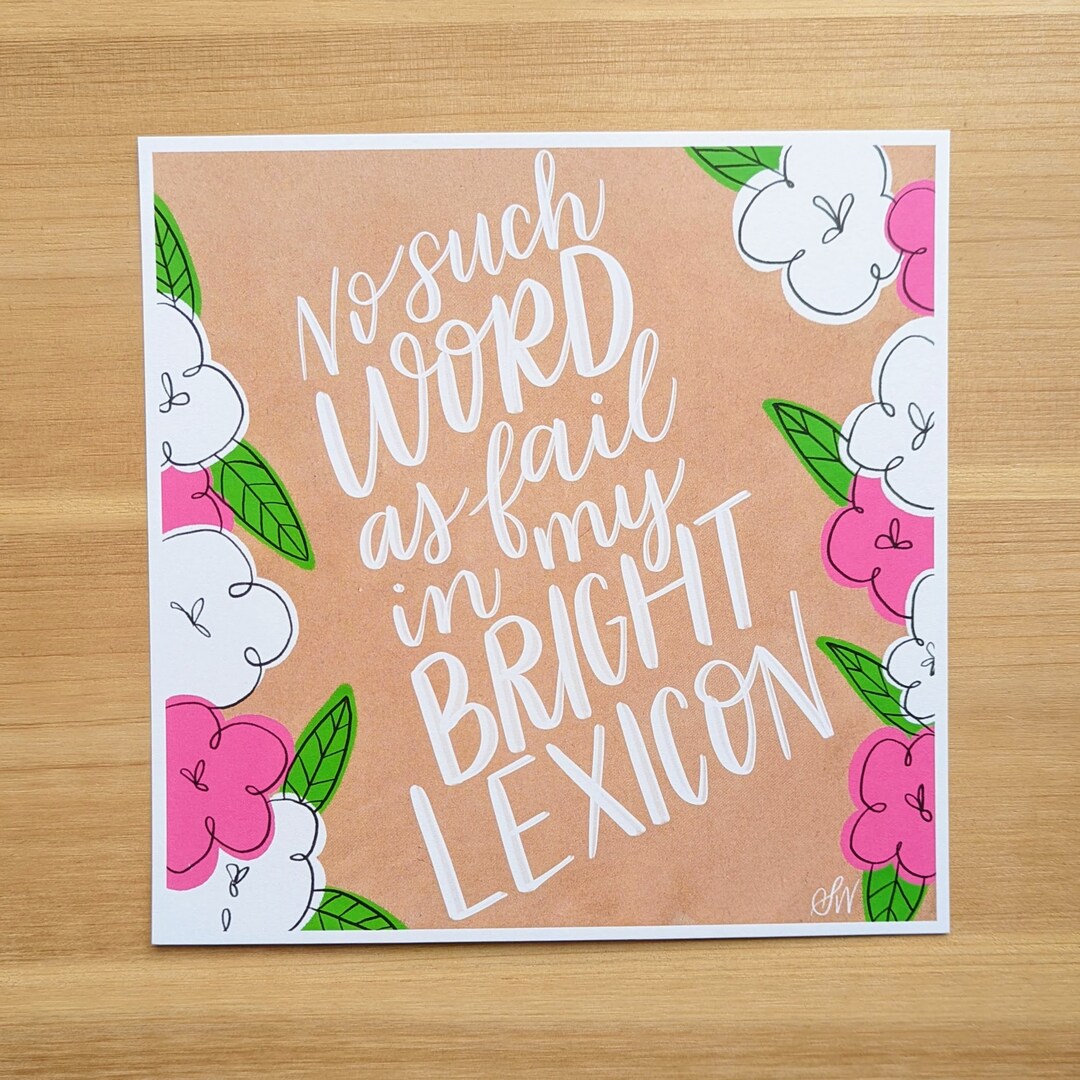 No such
WORD
as fail
in my
BRIGHT
LEXICON
SW